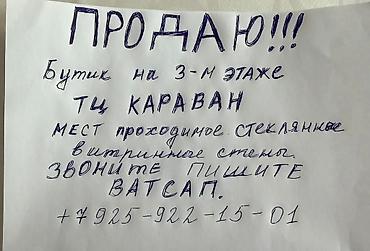 ПРОДАЮ!!!
Бутик на 3-м этаже
ТЦ КАРАВАН
мест проходимое стеклянные
витринные стены
ЗВОНИТЕ ПИШИТЕ
ВАТСАП.
+7925-922-15-01